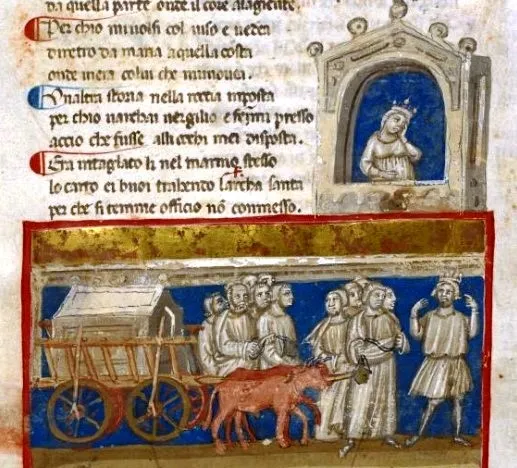 da quella parte onde il core alagente.
Per chio mi uolsi col uiso e uedea
diretro da maria aquella costa
onde mera colui che mi mouea.
Unaltra storia nella roccia imposta
per chio uarchai uergilio e fecimi presso
accio che fusse alli occhi mei disposta.
Era intaglato li nel marmo stesso
lo carro ei buoi trahendo larcha santa
per che si teme officio nõ commesso.